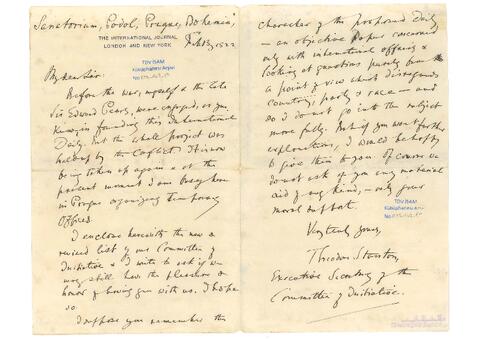 Sanatorium, Podol, Prague, Bohemia,
THE INTERNATIONAL JOURNAL
LONDON AND NEW YORK
Feb 13, 1922
TDV İSAM
Kütüphanesi Arşivi
No
My dear Sir:
Before the war, myself & the late
Sir Edward Pears, were engaged, as you
know, in founding this International
Daily. But the whole project was
held up by the Conflict. It is now
being taken up again & at the
present moment I am busy here
in Prague organizing temporary
Offices.
I enclose herewith the new &
revised list of our Committee of
Initiative & I write to ask if we
may still have the pleasure &
honor of having you with us. I hope
so.
I suppose you remember the
character of the proposed Daily
— an objective Paper concerned
only with international affairs &
looking at questions purely from
a point of view which disregards
country, party & race — and
so I do not go into the subject
more fully. But if you want further
explanations, I would be happy
to give them to you. Of course we
do not ask of you any material
aid of any kind, — only your
moral support.
TDV İSAM
Kütüphanesi Arşivi
No
Very truly yours,
Theodore Stanton,
Executive Secretary of the
Committee of Initiative.